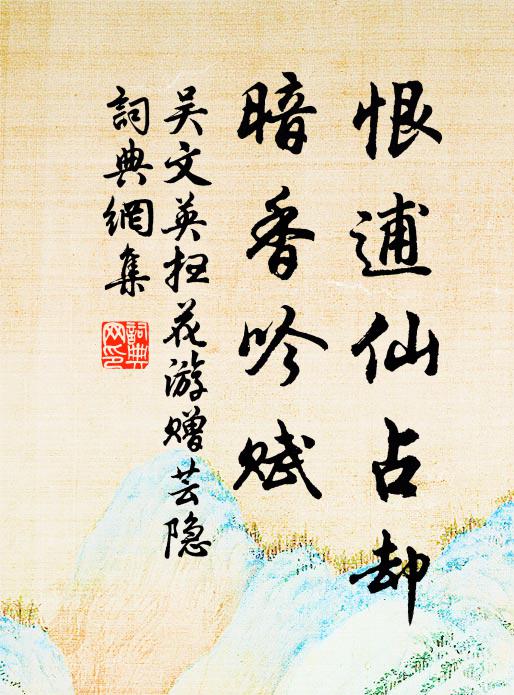 恨逋仙占却
暗香吟赋
吴文英扫花游赠芸隐
詞典網集
詞典网印